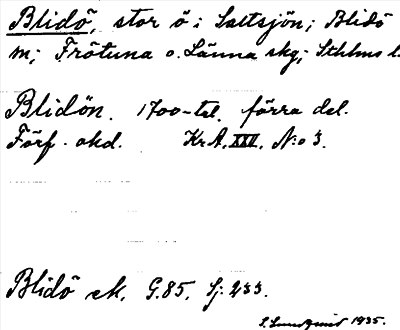 Blidö, stor ö i Saltsjön; Blidö
sn; Frötuna o. Länna skg; Sthlms l.
Blidön. 1700-tal. förra del.
Förf. okd. KrA. XXII. N:o 3.
Blidö ek. G.85. Sj: 233.
S. Lundquist 1935.